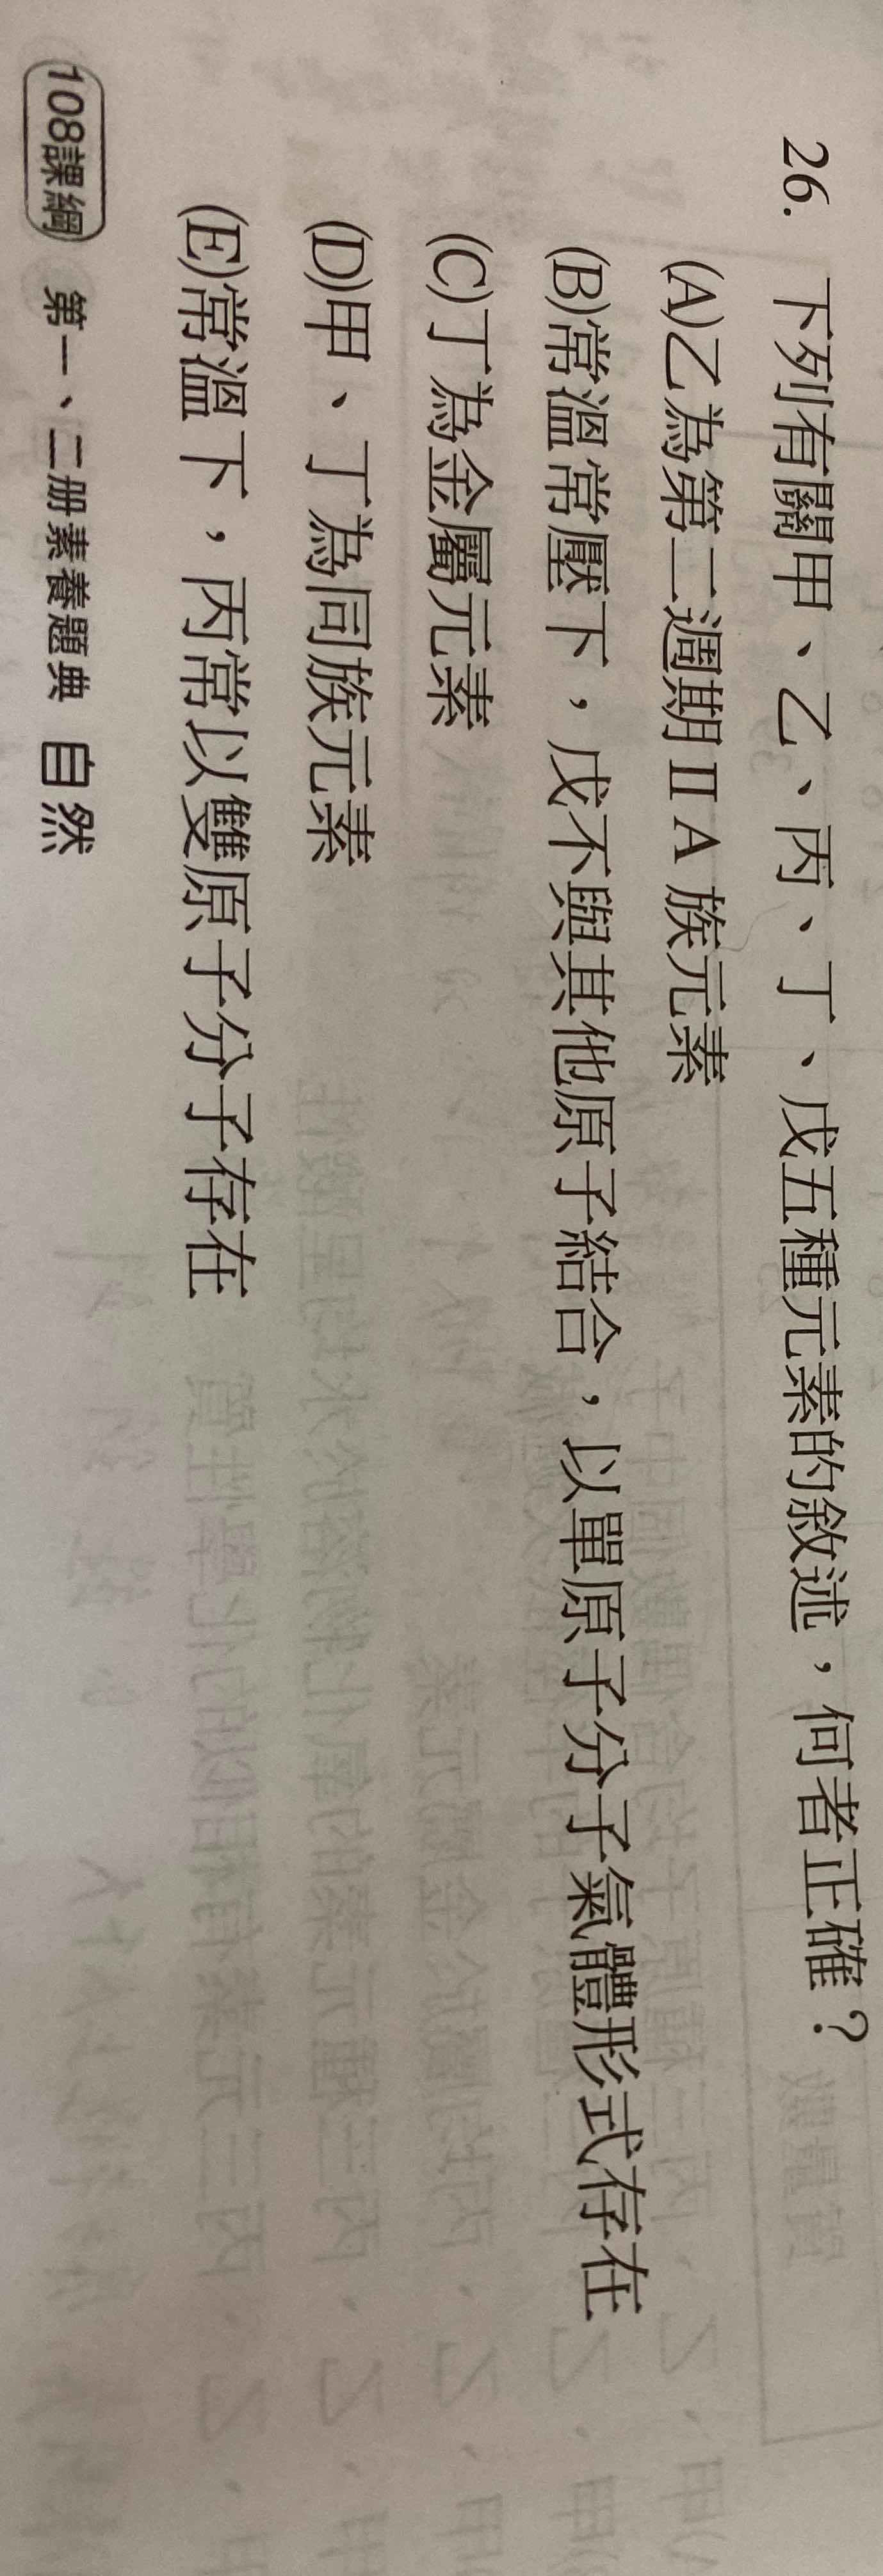 26. 下列有關甲、乙、丙、丁、戊五種元素的敘述，何者正確？
(A)乙為第二週期ⅡA族元素
(B)常溫常壓下，戊不與其他原子結合，以單原子分子氣體形式存在
(C)丁為金屬元素
(D)甲、丁為同族元素
(E)常溫下，丙常以雙原子分子存在
108課綱 第一、二冊素養題典 自然